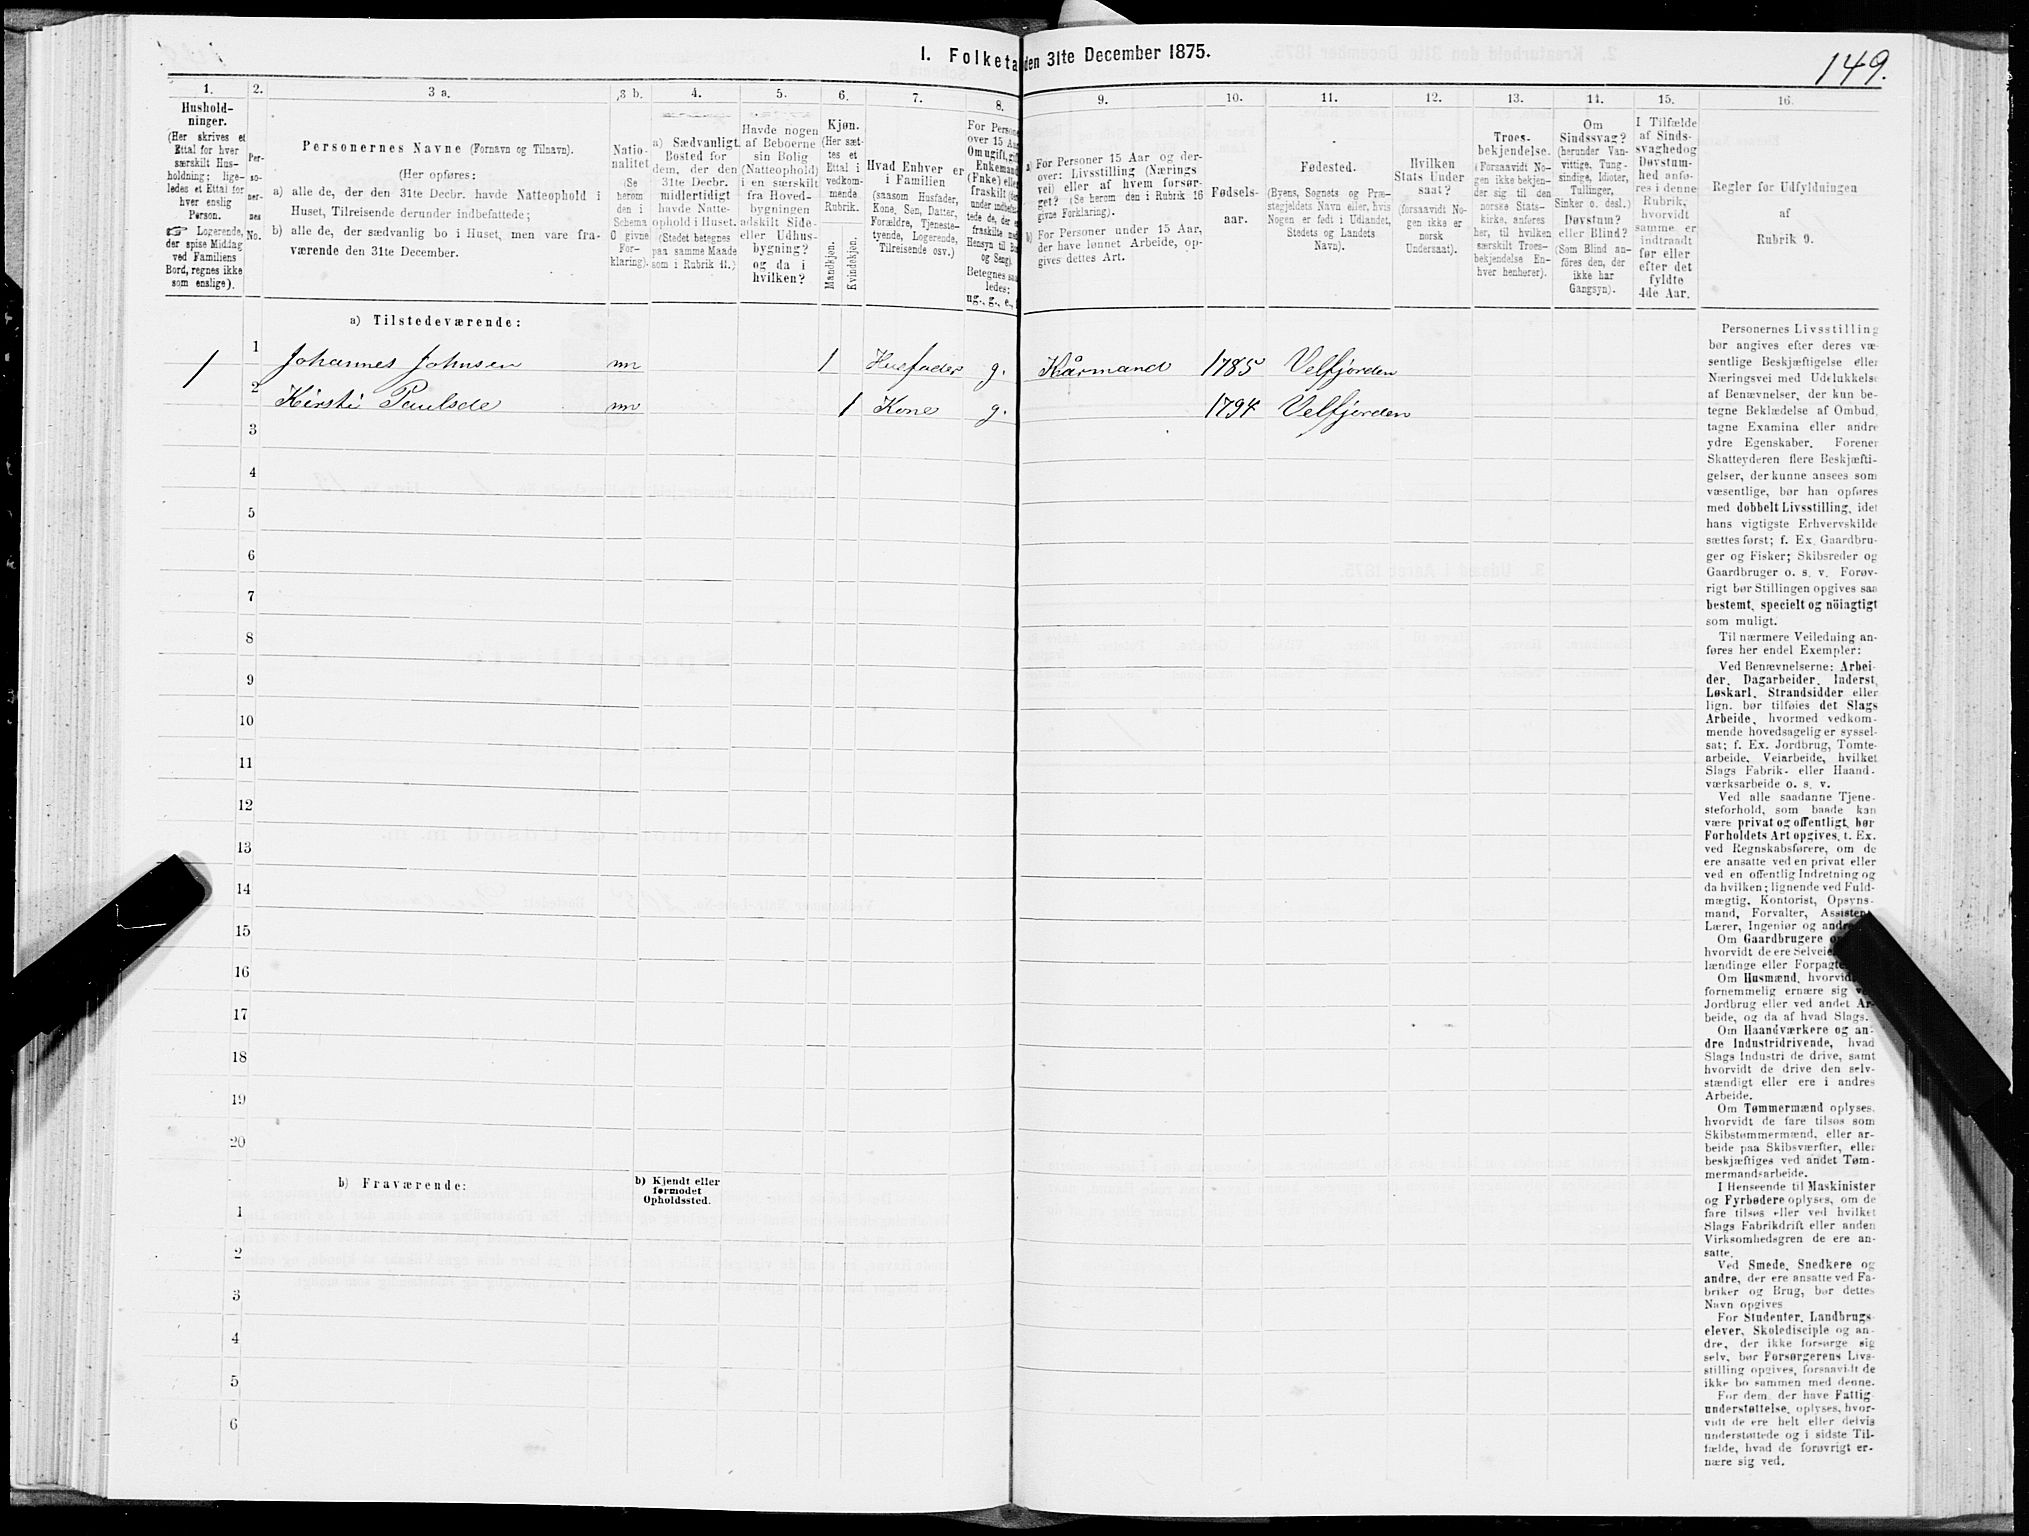 149.
1. Folketæ den 31te December 1875.
1. 2. 3 a. 3 b. 4. 5. 6. 7. 8. 9. 10. 11. 12. 13. 14. 15. 16.
Hushold-
ninger.
(Her skrives et
Ettal for hver
særskilt Hus-
holdning; lige-
ledes et Ettal for
hver enslig
Person.
☞ Logerende,
der spise Middag
ved Familiens
Bord, regnes ikke
som enslige).
Per-
so-
ner-
nes
No.
Personernes Navne (Fornavn og Tilnavn).
(Her opføres:
a) alle de, der den 31te Decbr. havde Natteophold i
Huset, Tilreisende derunder indbefattede;
b) alle de, der sædvanlig bo i Huset, men vare fra-
værende den 31te December.
Natio-
nalitet
(Se
herom
den i
Schema
O givne
For-
klaring).
a) Sædvanligt
Bosted for
dem, der den
31te Decbr.
midlertidigt
havde Natte-
ophold i Huset.
(Stedet betegnes
paa samme Maade
som i Rubrik 11.)
Havde nogen
af Beboerne
sin Bolig
(Natteophold)
i en særskilt
fra Hoved-
bygningen
adskilt Side-
eller Udhus-
bygning?
og da i
hvilken?
Kjøn.
(Her sæt-
tes et
Ettal i
vedkom-
mende
Rubrik.
Mandkjøn.
Kvindekjøn.
Hvad Enhver er
i Familien
(saasom Husfader,
Kone, Søn, Datter,
Forældre, Tjeneste-
tyende, Logerende,
Tilreisende osv.)
For Persone
over 15 Aar
Om ugift, gift
Enkemand
(Fnke) elle
fraskilt
under indbefat
tede de, der e
fraskilte
Hensyn til Bo
og Seng).
Betegnes saa
ledes:
ug., g., e.,
a) For Personer 15 Aar og der-
over: Livsstilling (Nærings
vei) eller af hvem forsør-
get? (Se herom den i Rubrik 16
givne Forklaring).
b) For Personer under 15 Aar,
der have lønnet Arbeide, op-
gives dettes Art.
Fødsels-
aar.
Fødested.
(Byens, Sognets og Præ-
stegjeldets Navn eller, hvis
Nogen er født i Udlandet,
Stedets og Landets
Navn).
Hvilken
Stats Under
saat?
(forsaavidt No-
gen ikke er
norsk
Undersaat).
Troes-
bekjendelse.
(Forsaavidt No-
gen ikke bekjen-
der sig til den
norske Stats-
kirke, anføres
her, til hvilken
særskilt Troes-
bekjendelse En-
hver henhører).
Om
Sindssvag?
(herunder Van-
vittige, Tung-
sindige, Idioter,
Tullinger,
Sinker o. desl.)
Døvstum?
eller Blind?
(Som Blind an-
føres den, der
ikke har
Gangsyn).
I Tilfælde
af Sinds-
svaghed og
Døvstum-
hed anfø-
res i denne
Rubrik,
hvorvidt
samme er
indtraadt
før eller
efter det
fyldte
4de Aar.
Regler for Udfyldningen
af
Rubrik 9.
a) Tilstedeværende:
1 1 Johannes Johnsen nn 1 Husfader g. Kårmand 1785 Velfjorden
2 Kirsti Paulsdr nn 1 Kone g. 1794 Velfjorden
3
4
5
6
7
8
9
10
11
12
13
14
15
16
17
18
19
20
b) Fraværende:
b) Kjendt eller
formodet
Opholdssted.
1
2
3
4
5
6
Personernes Livsstilling
bør angives efter deres væ-
sentlige Beskjæftigelse eller
Næringsvei med Udelukkelse
af Benævnelser, der kun be-
tegne Beklædelse af Ombud,
tagne Examina eller andre
ydre Egenskaber. Forener
Skatteyderen flere Beskjæfti-
gelser, der kunne ansees som
væsentlige, bør han opføres
med dobbelt Livsstilling, idet
hans vigtigste Erhvervskilde
sættes først; f. Ex. Gaardbru-
ger og Fisker; Skibsreder og
Gaardbruger o. s. v. Forøv-
rigt bør Stillingen opgives saa
bestemt, specielt og nöiagtigt
som muligt.
Til nærmere Veiledning an-
føres her endel Exempler:
Ved Benævnelserne: Arbei-
der, Dagarbeider, Inderst,
Løskarl, Strandsidder eller
lign. bør tilføies det Slags
Arbeide, hvormed vedkom-
mende hovedsagelig er syssel-
sat; f. Ex. Jordbrug, Tomte-
arbeide, Veiarbeide, hvilket
Slags Fabrik- eller Haand-
værksarbeide o. s. v.
Ved alle saadanne Tjene-
steforhold, som baade kan
være privat og offentligt, bør
Forholdets Art opgives, t. Ex.
ved Regnskabsførere, om de
ere ansatte ved en privat eller
ved en offentlig Indretning og
da hvilken; lignende ved Fuld-
mægtig, Kontorist, Opsyns-
mand, Forvalter, Assisten
Lærer, Ingeniør og andre
Om Gaardbrugere op
hvorvidt de ere Selveie
lændinge eller Forpagte
Om Husmænd, hvorvid
fornemmelig ernære sig v
Jordbrug eller ved andet Ar-
beide, og da af hvad Slags.
Om Haandværkere og an-
dre Industridrivende, hvad
Slags Industri de drive, samt
hvorvidt de drive den selv-
stændigt eller ere i andres
Arbeide.
Om Tømmermænd oplyses,
hvorvidt de fare tilsøs som
Skibstømmermænd, eller ar-
beide paa Skibsværfter, eller
beskjæftiges ved andet Tøm-
mermandsarbeide.
I Henseende til Maskinister
og Fyrbødere oplyses, om de
fare tilsøs eller ved hvilket
Slags Fabrikdrift eller anden
Virksomhedsgren de ere an-
satte.
Ved Smede, Snedkere og
andre, der ere ansatte ved Fa-
briker og Brug, bør dettes
Navn opgives
For Studenter, Landbrugs-
elever, Skoledisciple og an-
dre, der ikke forsørge sig
selv, bør Forsørgerens Livs-
stilling opgives, forsaavidt de
ikke bo sammen med denne.
For dem, der have Fattig-
understøttelse, oplyses, hvor-
vidt de ere helt eller delvis
understøttede og i sidste Til-
fælde, hvad de forøvrigt er-
nære sig ved.